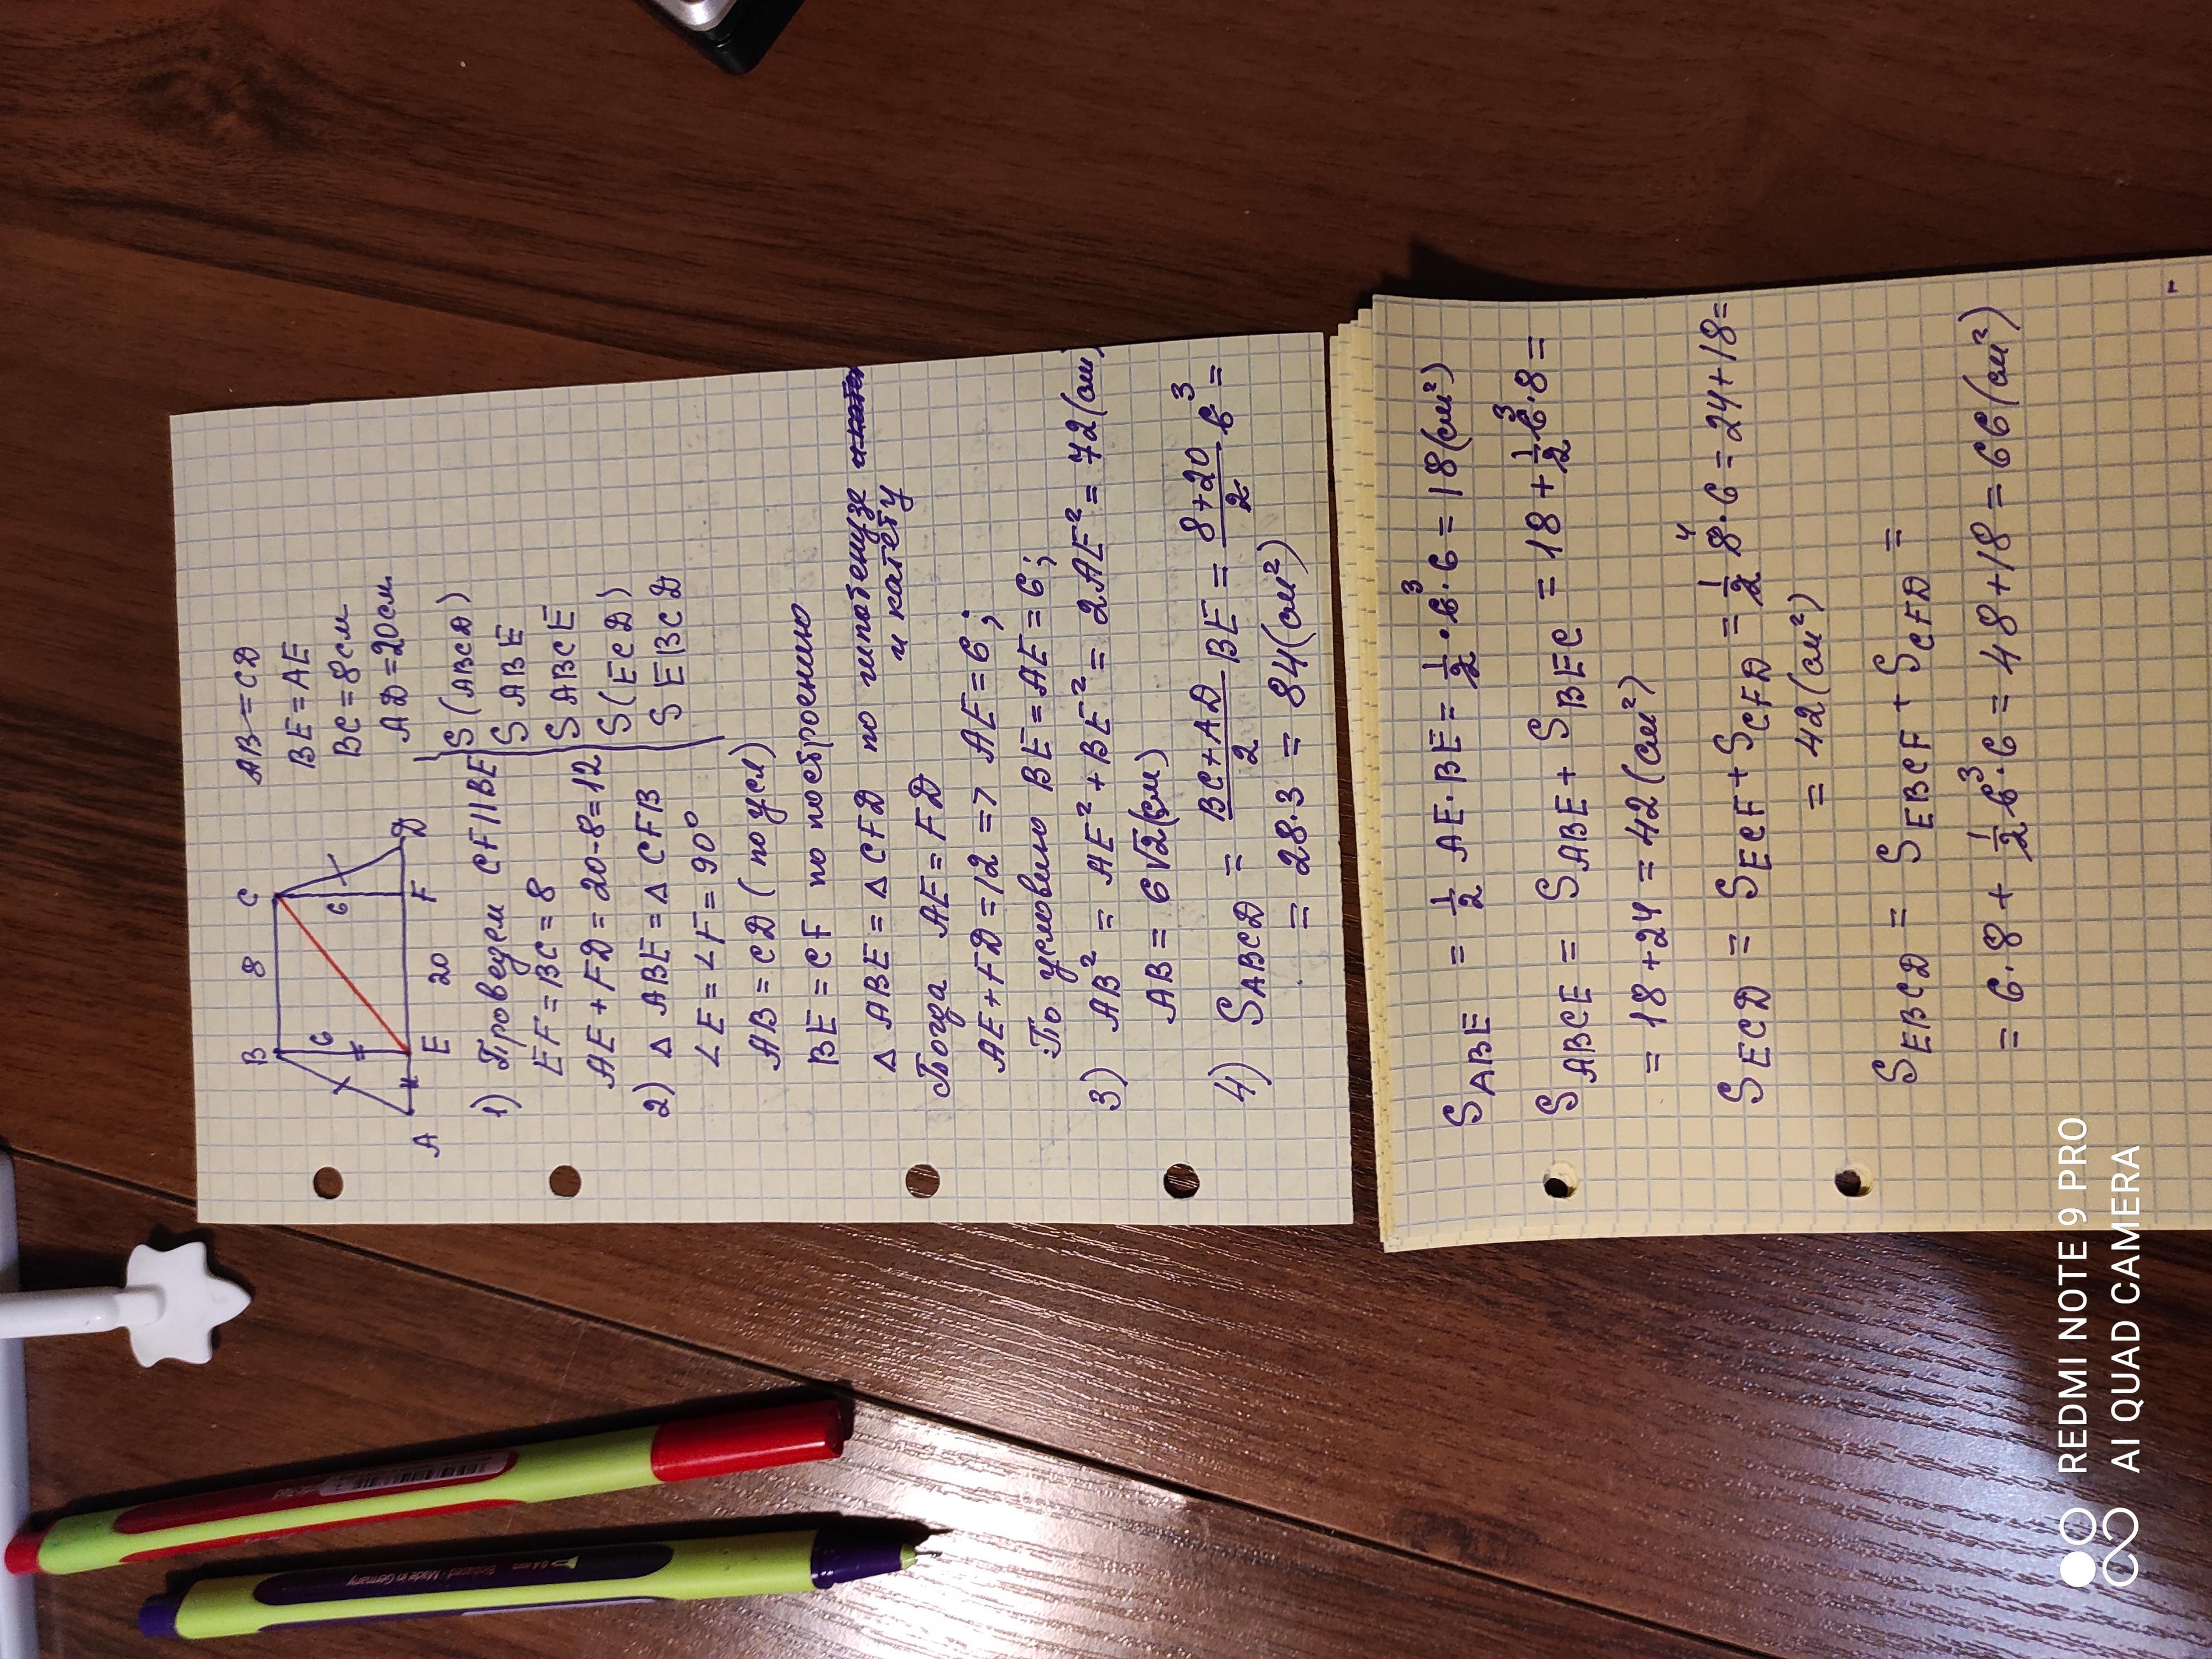 AB = CD
BE = AE
BC = 8см
AD = 20см
B 8 C
6 6
A E 20 F D
S(ABCD)
S ABE
S ABCE
S(ECD)
S EBCD
1) Проведем CF||BE
EF = BC = 8
AE + FD = 20-8=12
2) △ ABE = △ CFB
∠E = ∠F = 90°
AB = CD ( по усл)
BE = CF по построению
△ ABE = △ CFD по гипотенузе
и катету
Тогда AE = FD
AE + FD = 12 => AE = 6;
По условию BE = AE = 6;
3) AB² = AE² + BE² = 2AE² = 72(см)
AB = 6√2(см)
4) S ABCD = BC+AD/2 BE = 8+20/2 6 3 =
= 28·3 = 84(см²)
S ABE = 1/2 AE·BE = 1/2·6 3·6 = 18(см²)
S ABCE = S ABE + S BEC = 18 + 1/2 6 3·8 =
= 18+24 = 42(см²)
S ECD = S ECF + S CFD = 1/2 8 4·6 = 24+18=
= 42(см²)
S EBCD = S EBCF + S CFD =
= 6·8 + 1/2 6 3·6 = 48+18 = 66(см²)
REDMI NOTE 9 PRO
AI QUAD CAMERA